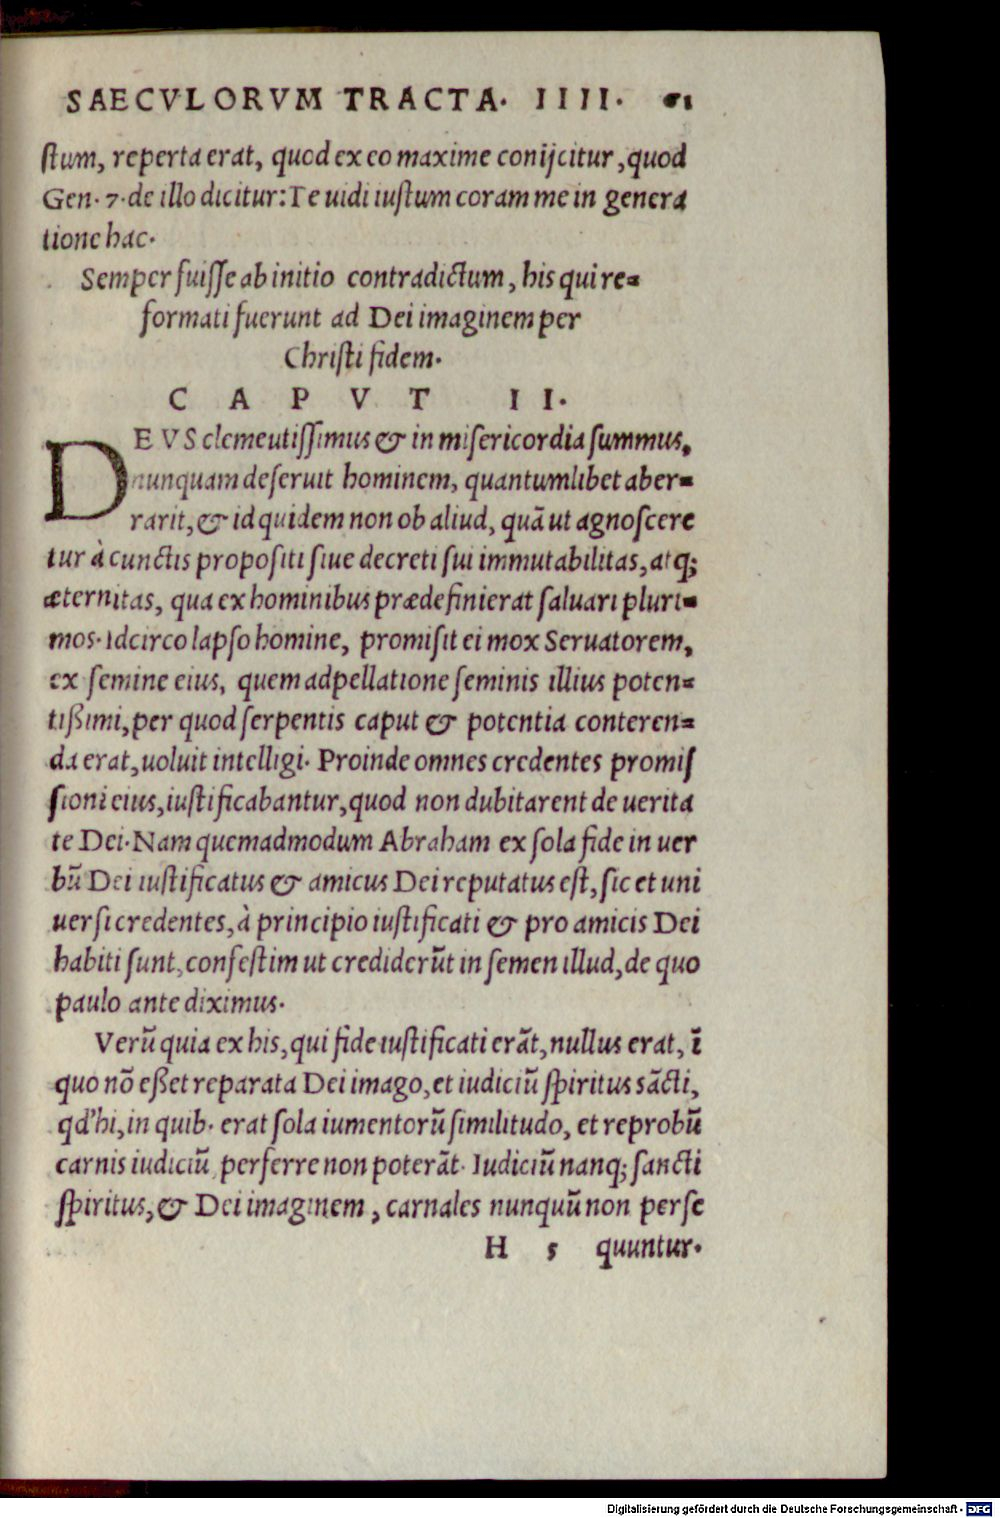 SAECVLORVM TRACTA. IIII. 61
ſtum, reperta erat, quod ex eo maxime conijcitur, quod
Gen. 7. de illo dicitur: Te uidi iuſtum coram me in genera
tione hac.
Semper fuiſſe ab initio contradictum, his qui re=
formati fuerunt ad Dei imaginem per
Chriſti fidem.
CAPVT II.
DEVS clemeutiſſimus & in miſericordia ſummus,
nunquam deſeruit hominem, quantumlibet aber=
rarit, & id quidem non ob aliud, quā ut agnoſcere
tur à cunctis propoſiti ſiue decreti ſui immutabilitas, atq;
æternitas, qua ex hominibus prædefinierat ſaluari pluri=
mos. Idcirco lapſo homine, promiſit ei mox Seruatorem,
ex ſemine eius, quem adpellatione ſeminis illius poten=
tißimi, per quod ſerpentis caput & potentia conteren=
da erat, uoluit intelligi. Proinde omnes credentes promiſ
ſioni eius, iuſtificabantur, quod non dubitarent de uerita
te Dei. Nam quemadmodum Abraham ex ſola fide in uer
bū Dei iuſtificatus & amicus Dei reputatus eſt, ſic et uni
uerſi credentes, à principio iuſtificati & pro amicis Dei
habiti ſunt, confeſtim ut crediderūt in ſemen illud, de quo
paulo ante diximus.
Verū quia ex his, qui fide iuſtificati erāt, nullus erat, ī
quo nō eßet reparata Dei imago, et iudiciū ſpiritus sācti,
qd' hi, in quib. erat ſola iumentorū ſimilitudo, et reprobū
carnis iudiciū perferre non poterāt. Iudiciū nanq; ſancti
ſpiritus, & Dei imaginem, carnales nunquū non perſe
H 5 quuntur.
Digitalisierung gefördert durch die Deutsche Forschungsgemeinschaft - DFG